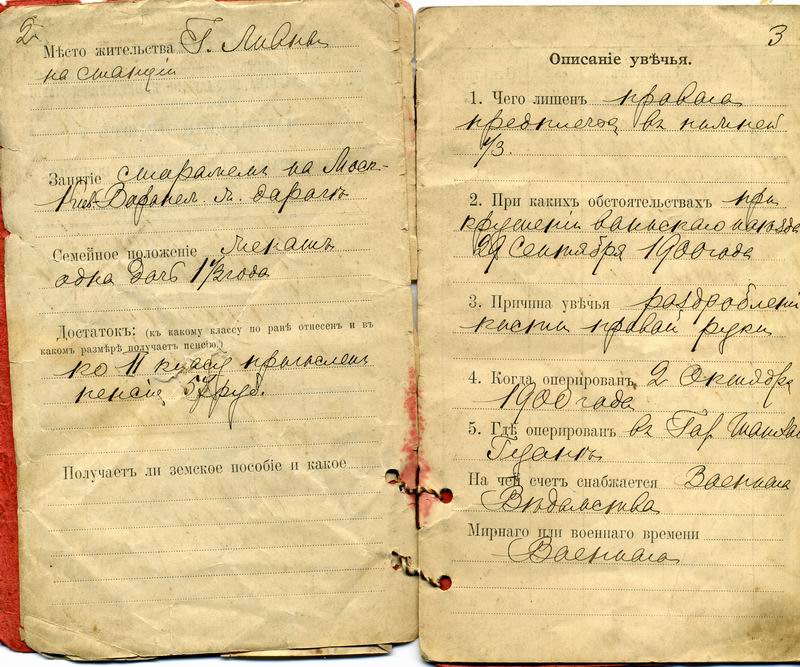 2
Мѣсто жительства Г. Ливны
на станціи
Занятіе сторожемъ на Моск-
Кіев-Воронеж. ж. дорогѣ
Семейное положеніе женатъ
одна дочь 1 1/2 года
Достатокъ: (къ какому классу по ранѣ отнесенъ и въ
какомъ размѣрѣ получаетъ пенсію.)
ко II классу причисленъ
пенсіи 57 руб.
Получаетъ ли земское пособіе и какое
3
Описаніе увѣчья.
1. Чего лишенъ праваго
предплечья въ нижней
1/3.
2. При какихъ обстоятельствахъ при
крушеніи воинскаго поѣзда
29 Сентября 1900 года
3. Причина увѣчья раздробленіе
кости правой руки
4. Когда оперированъ 2 Октября
1900 года
5. Гдѣ оперированъ въ Гор.
На чей счетъ снабжается Военнаго
Вѣдомства
Мирнаго или военнаго времени
Военнаго